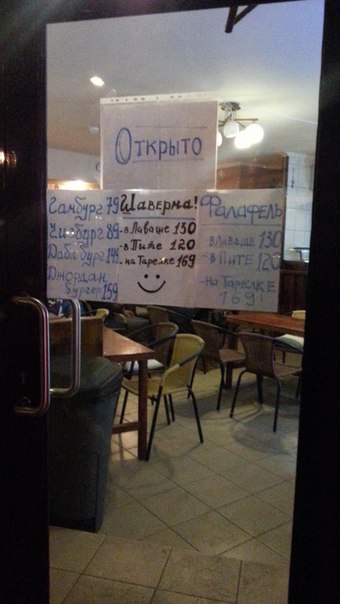 Открыто
Гамбург 79
Чизбург 89
Даблбург 149
Джордан
бургер 159
Шаверма!
-в Лаваше 130
-в Пите 120
-на Тарелке 169
Фалафель
-в Лаваше 130
-в Пите 120
-на Тарелке
169!